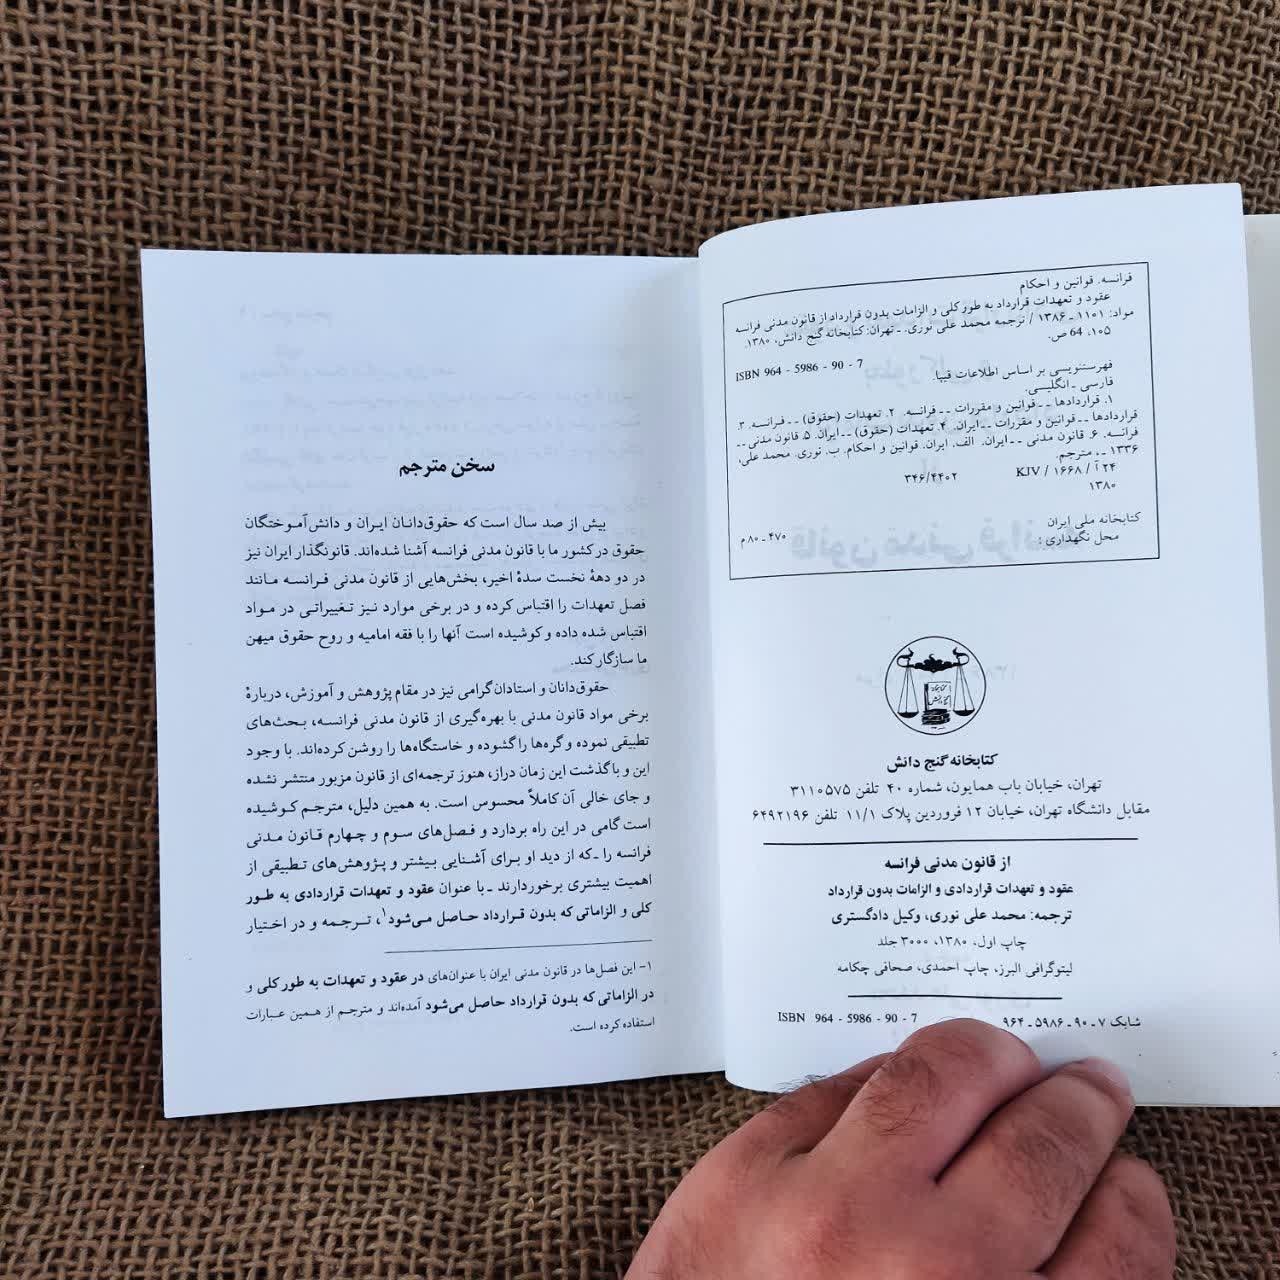 فرانسه. قوانین و احکام
عقود و تعهدات قرارداد به طور کلی و الزامات بدون قرارداد از قانون مدنی فرانسه
مواد: ۱۱۰۱ ـ ۱۳۸۶ / ترجمه محمد علی نوری. ـ تهران: کتابخانه گنج دانش، ۱۳۸۰.
۱۰۵، 64 ص.
ISBN 964 - 5986 - 90 - 7
فهرستنویسی بر اساس اطلاعات فیپا.
فارسی ـ انگلیسی.
۱. قراردادها ــ قوانین و مقررات ــ فرانسه. ۲. تعهدات (حقوق) ــ فرانسه. ۳.
قراردادها ــ قوانین و مقررات ــ ایران. ۴. تعهدات (حقوق) ــ ایران. ۵. قانون مدنی ــ
فرانسه. ۶. قانون مدنی ــ ایران. الف. ایران. قوانین و احکام. ب. نوری. محمد علی،
۱۳۳۶ ـ ، مترجم.
۲۴ آ / ۱۶۶۸ / KJV ۳۴۶/۴۴۰۲
۱۳۸۰
کتابخانه ملی ایران
محل نگهداری: ۴۷۰ ـ ۸۰ م
کتابخانه گنج دانش
تهران، خیابان باب همایون، شماره ۴۰ تلفن ۳۱۱۰۵۷۵
مقابل دانشگاه تهران، خیابان ۱۲ فروردین پلاک ۱۱/۱ تلفن ۶۴۹۲۱۹۶
از قانون مدنی فرانسه
عقود و تعهدات قراردادی و الزامات بدون قرارداد
ترجمه: محمد علی نوری، وکیل دادگستری
چاپ اول، ۱۳۸۰، ۳۰۰۰ جلد
لیتوگرافی البرز، چاپ احمدی، صحافی چکامه
شابک ۷ ـ ۹۰ ـ ۵۹۸۶ ـ ۹۶۴ ISBN 964 - 5986 - 90 - 7
سخن مترجم
بیش از صد سال است که حقوق‌دانان ایران و دانش‌آموختگان
حقوق در کشور ما با قانون مدنی فرانسه آشنا شده‌اند. قانونگذار ایران نیز
در دو دههٔ نخست سدهٔ اخیر، بخش‌هایی از قانون مدنی فرانسه مانند
فصل تعهدات را اقتباس کرده و در برخی موارد نیز تغییراتی در مواد
اقتباس شده داده و کوشیده است آنها را با فقه امامیه و روح حقوق میهن
ما سازگار کند.
حقوق‌دانان و استادان گرامی نیز در مقام پژوهش و آموزش، دربارهٔ
برخی مواد قانون مدنی با بهره‌گیری از قانون مدنی فرانسه، بحث‌های
تطبیقی نموده و گره‌ها را گشوده و خاستگاه‌ها را روشن کرده‌اند. با وجود
این و با گذشت این زمان دراز، هنوز ترجمه‌ای از قانون مزبور منتشر نشده
و جای خالی آن کاملاً محسوس است. به همین دلیل، مترجم کوشیده
است گامی در این راه بردارد و فصل‌های سوم و چهارم قانون مدنی
فرانسه را ـ که از دید او برای آشنایی بیشتر و پژوهش‌های تطبیقی از
اهمیت بیشتری برخوردارند ـ با عنوان عقود و تعهدات قراردادی به طور
کلی و الزاماتی که بدون قرارداد حاصل می‌شود۱، ترجمه و در اختیار
۱- این فصل‌ها در قانون مدنی ایران با عنوان‌های در عقود و تعهدات به طور کلی و
در الزاماتی که بدون قرارداد حاصل می‌شود آمده‌اند و مترجم از همین عبارات
استفاده کرده است.